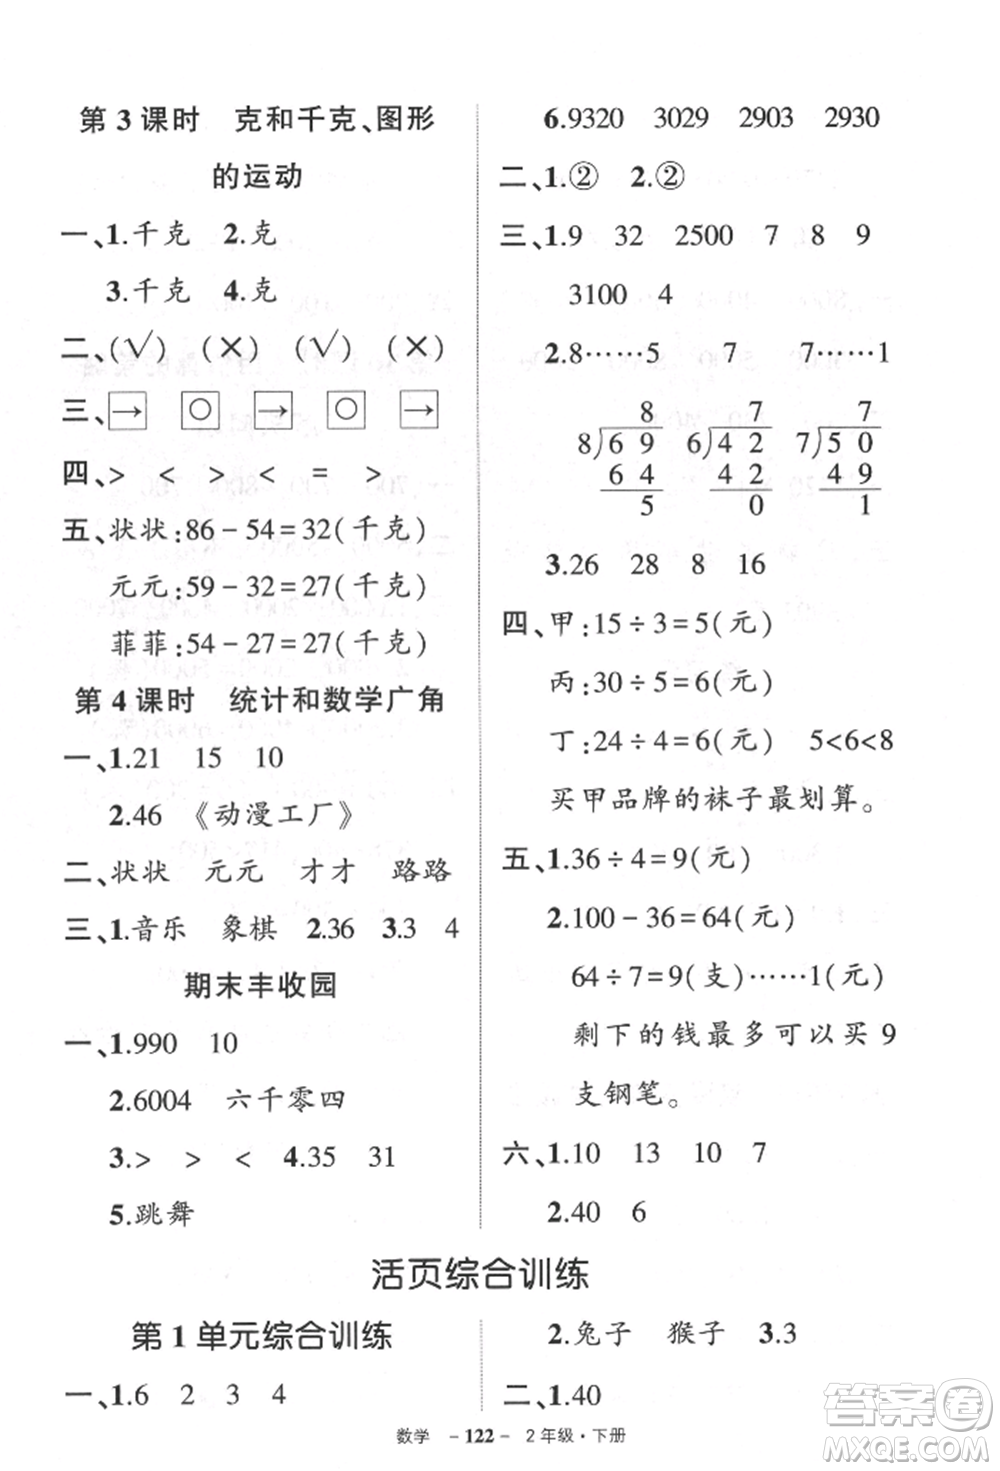 第3课时 克和千克、图形
的运动
一、1.千克 2.克
3.千克 4.克
二、(√) (×) (√) (×)
三、→ ○ → ○ →
四、> < > < = >
五、状状:86-54=32(千克)
元元:59-32=27(千克)
菲菲:54-27=27(千克)
第4课时 统计和数学广角
一、1.21 15 10
2.46 《动漫工厂》
二、状状 元元 才才 路路
三、1.音乐 象棋 2.36 3.3 4
期末丰收园
一、1.990 10
2.6004 六千零四
3.> > < 4.35 31
5.跳舞
6.9320 3029 2903 2930
二、1.② 2.②
三、1.9 32 2500 7 8 9
3100 4
2.8……5 7 7……1
8 7 7
8)69 6)42 7)50
64 42 49
5 0 1
3.26 28 8 16
四、甲:15÷3=5(元)
丙:30÷5=6(元)
丁:24÷4=6(元) 5<6<8
买甲品牌的袜子最划算。
五、1.36÷4=9(元)
2.100-36=64(元)
64÷7=9(支)……1(元)
剩下的钱最多可以买9
支钢笔。
六、1.10 13 10 7
2.40 6
活页综合训练
第1单元综合训练
一、1.6 2 3 4
2.兔子 猴子 3.3
二、1.40
数学 -122- 2年级·下册
答案卷
MXQE.COM